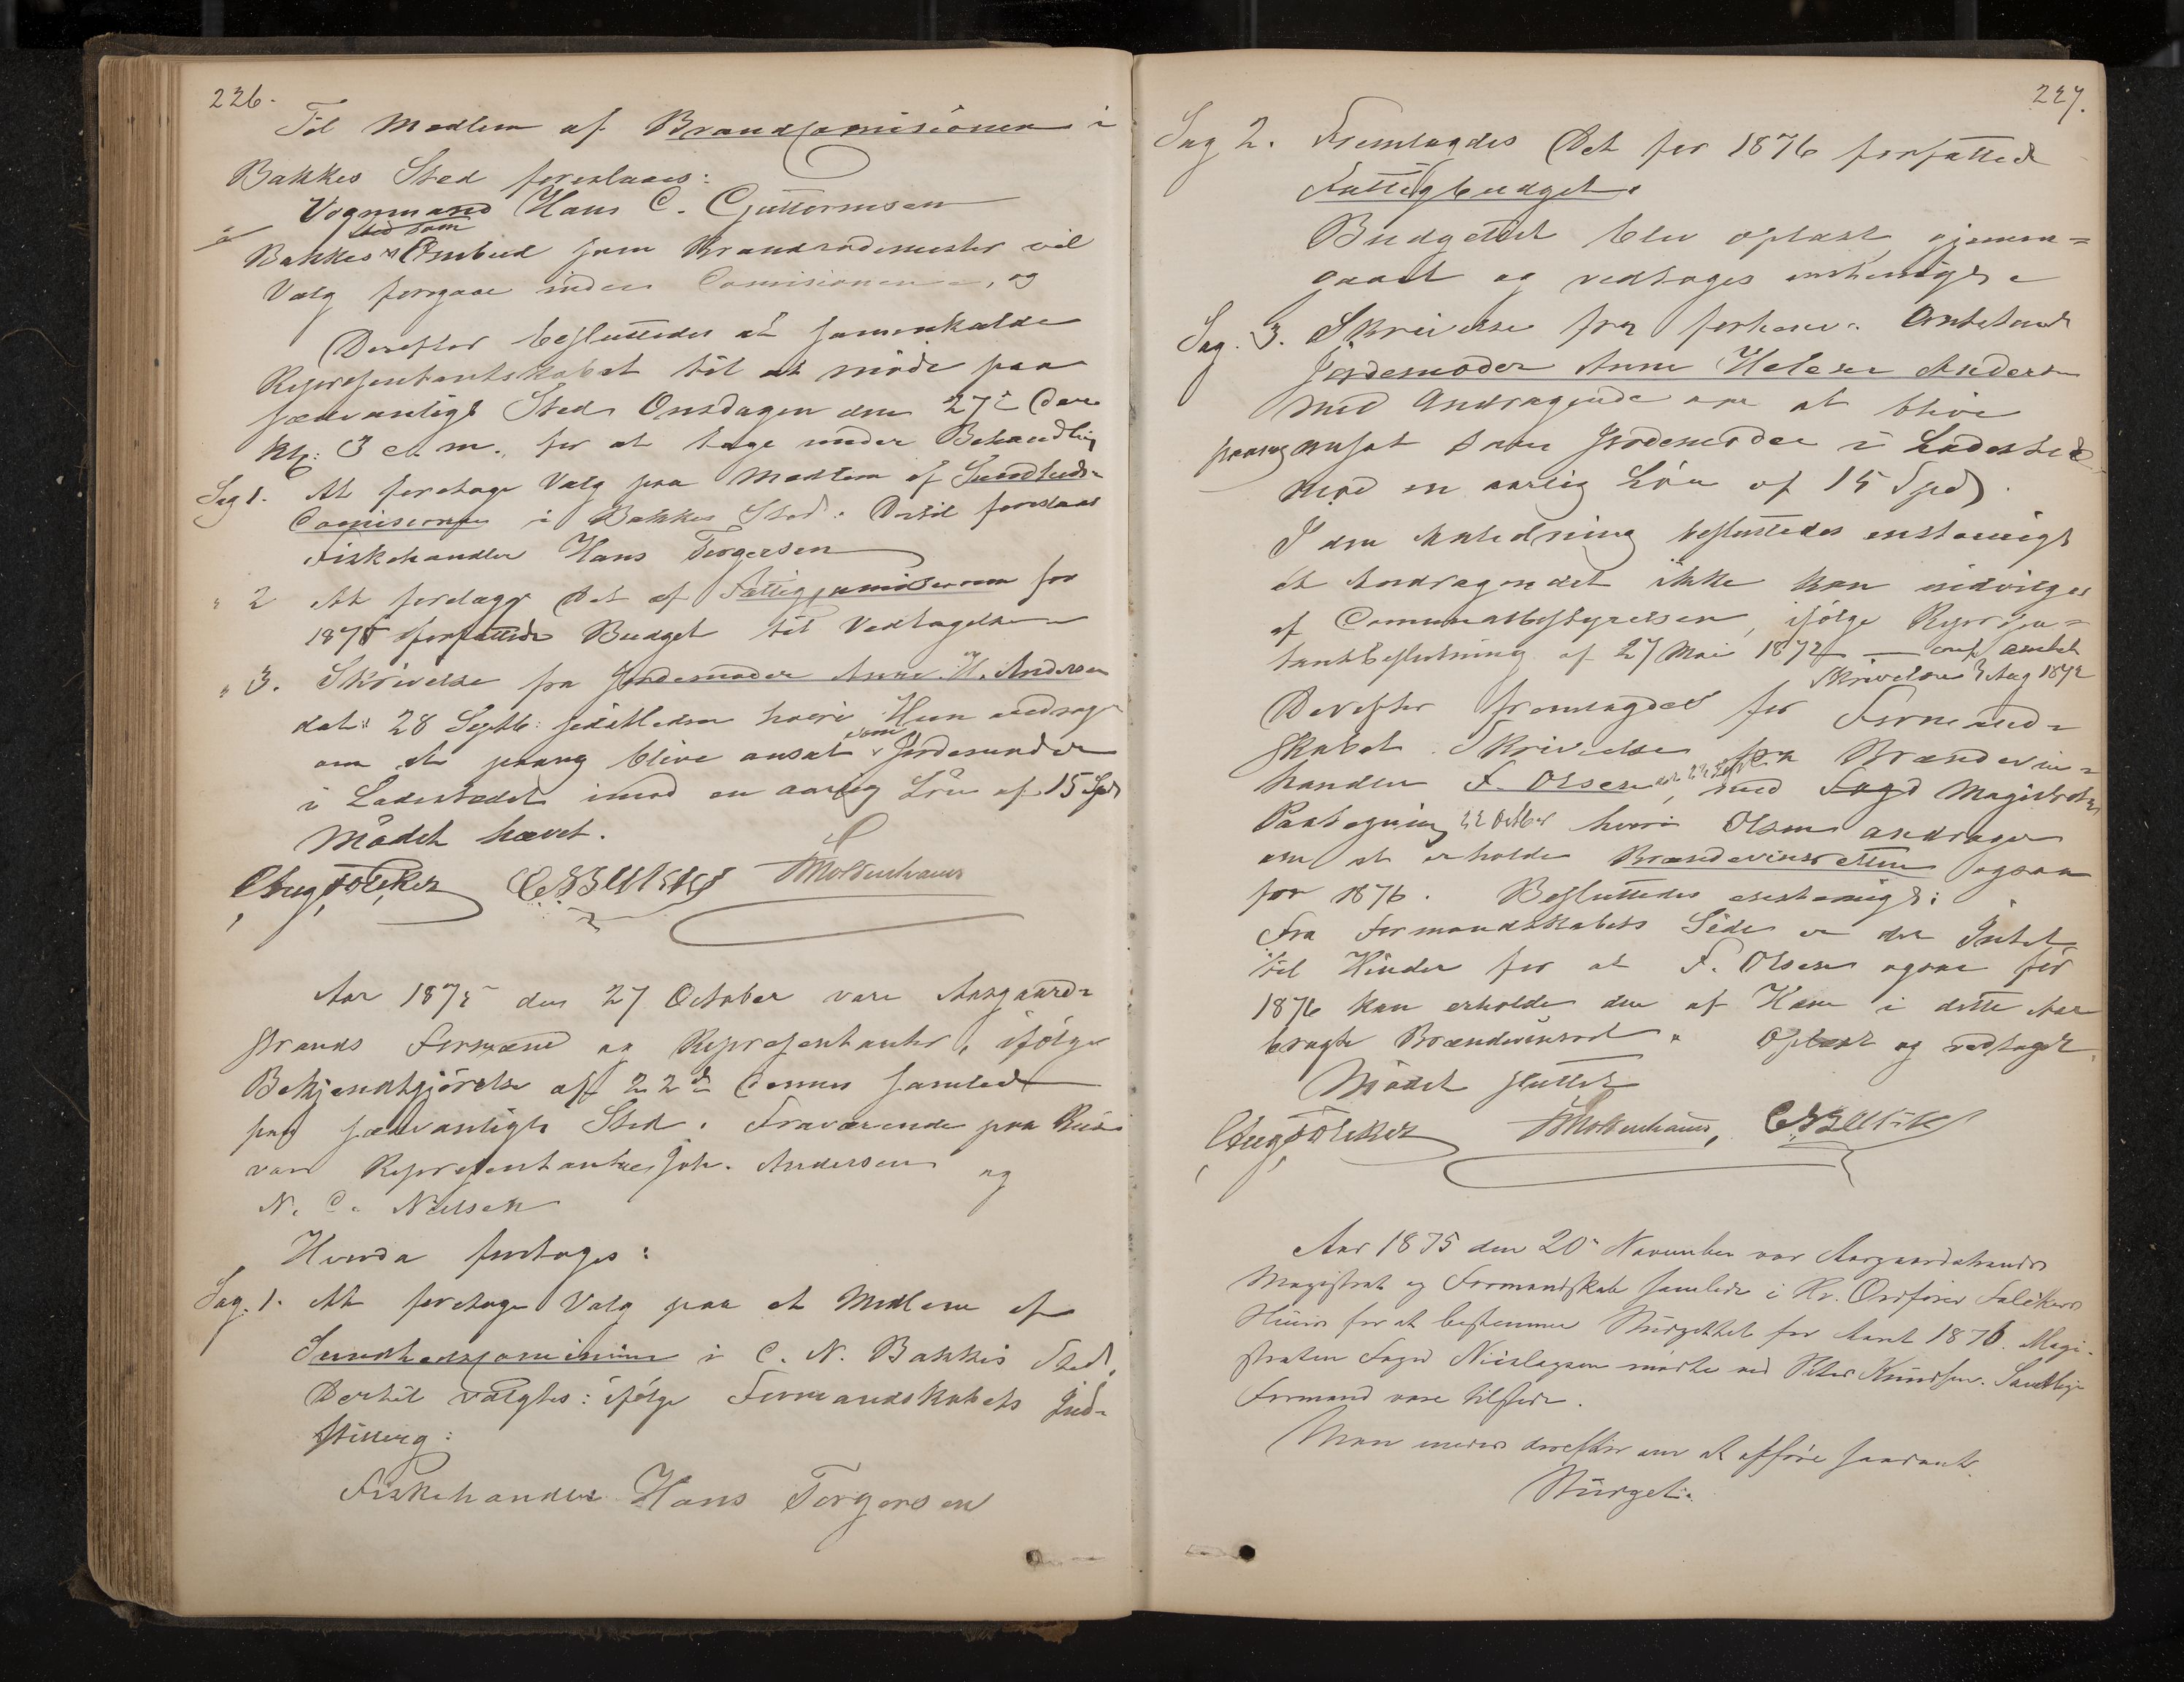 226.
Til Medlem af Brandcomisionen i
Bakkes Sted foreslaaes:
Vognmand Hans C. Guttormsen
I Bakkes Sted som Ombud som Brandrodemester vil
Valg foregaae inden Comisionen, og
Derefter besluttedes at sammenkalde
Representantskabet til at møde paa
sædvanligt Sted Onsdagen den 27de dens
Kl: 3 e. m., for at tage under Behandling
Sag 1. At foretage Valg paa Medlem af Sundheds-
Comisionen i Bakkes Sted. Dertil foreslaaes
Fiskehandler Hans Torgersen
" 2 At foredage Det af Fattigcomisionen for
1876 forfattede Budget til Vedtagelse
" 3. Skrivelse fra Jordemoder Anne H. Andersen
dat: 28 Septb: sidstleden hvori Hun andrager
om at paany blive ansat som Jordemoder
i Ladestedet imod en aarlig Løn af 15 Spd
Mødet hævet.
Aug Føleker Moldenhauer
Aar 1875 den 27 October vare Aasgaard-
strands Formænd og Representanter, ifølge
Bekjendtgjørelse af 22de dennes samlede
paa sædvanligt Sted. Fraværende paa Reise
vare Representanterne Joh. Andersen og
N. C. Nielsen
Hvorda foretoges:
Sag. 1. At foretage Valg paa et Medlem af
Sundhedscomisionen i C. N. Bakkes Sted.
Dertil valgtes: ifølge Formandskabets Ind-
stilling:
Fiskehandler Hans Torgersen
227.
Sag 2. Fremlagdes Det for 1876 forfattede
Fattigbudget.
Budgettet blev oplæst, gjennem-
gaaet og vedtoges enstemigt.
Sag. 3. Skrivelse fra forhenv. Antatend
Jordemoder Anne Helene Andersen
med Andragende om at blive
paany ansat som Jordemoder i Ladestedet
mod en aarlig Løn af 15 Spd.
I den Anledning besluttedes enstemigt
at Andragendet ikke kan indvilges
af Communebestyrelsen, ifølge Represen-
tantbeslutning af 27 Mai 1872 — conf. Amtets
Skrivelse 3 Aug 1872
Derefter fremlagdes for Formand-
skabet Skrivelse fra Brændeviin-
handler F. Olsen, med Foged Magistratens
Paategning 22 Octber hvori Olsen andrager
om at erholde Brændevinsretten ogsaa
for 1876. Besluttedes enstemigt:
Fra Formandskabets Side er der Intet
til Hinder for at F. Olsen ogsaa for
1876 kan erholde den af Ham i dette Aar
brugte Brændevinsret. Oplæst og vedtaget.
Mødet sluttet
Aug Føleker Moldenhauer,
Aar 1875 den 20de November var Aasgaardstrands
Magistrat og Formandskab samlede i Hr. Ordfører Følekers
Huus for at bestemme Budgettet for Aaret 1876. Magi-
straten Foged Nicolaysen mødte ved Peter Knudsen. Samtlige
Formænd vare tilstede.
Man enedes derefter om at afføre saadant
Budget: